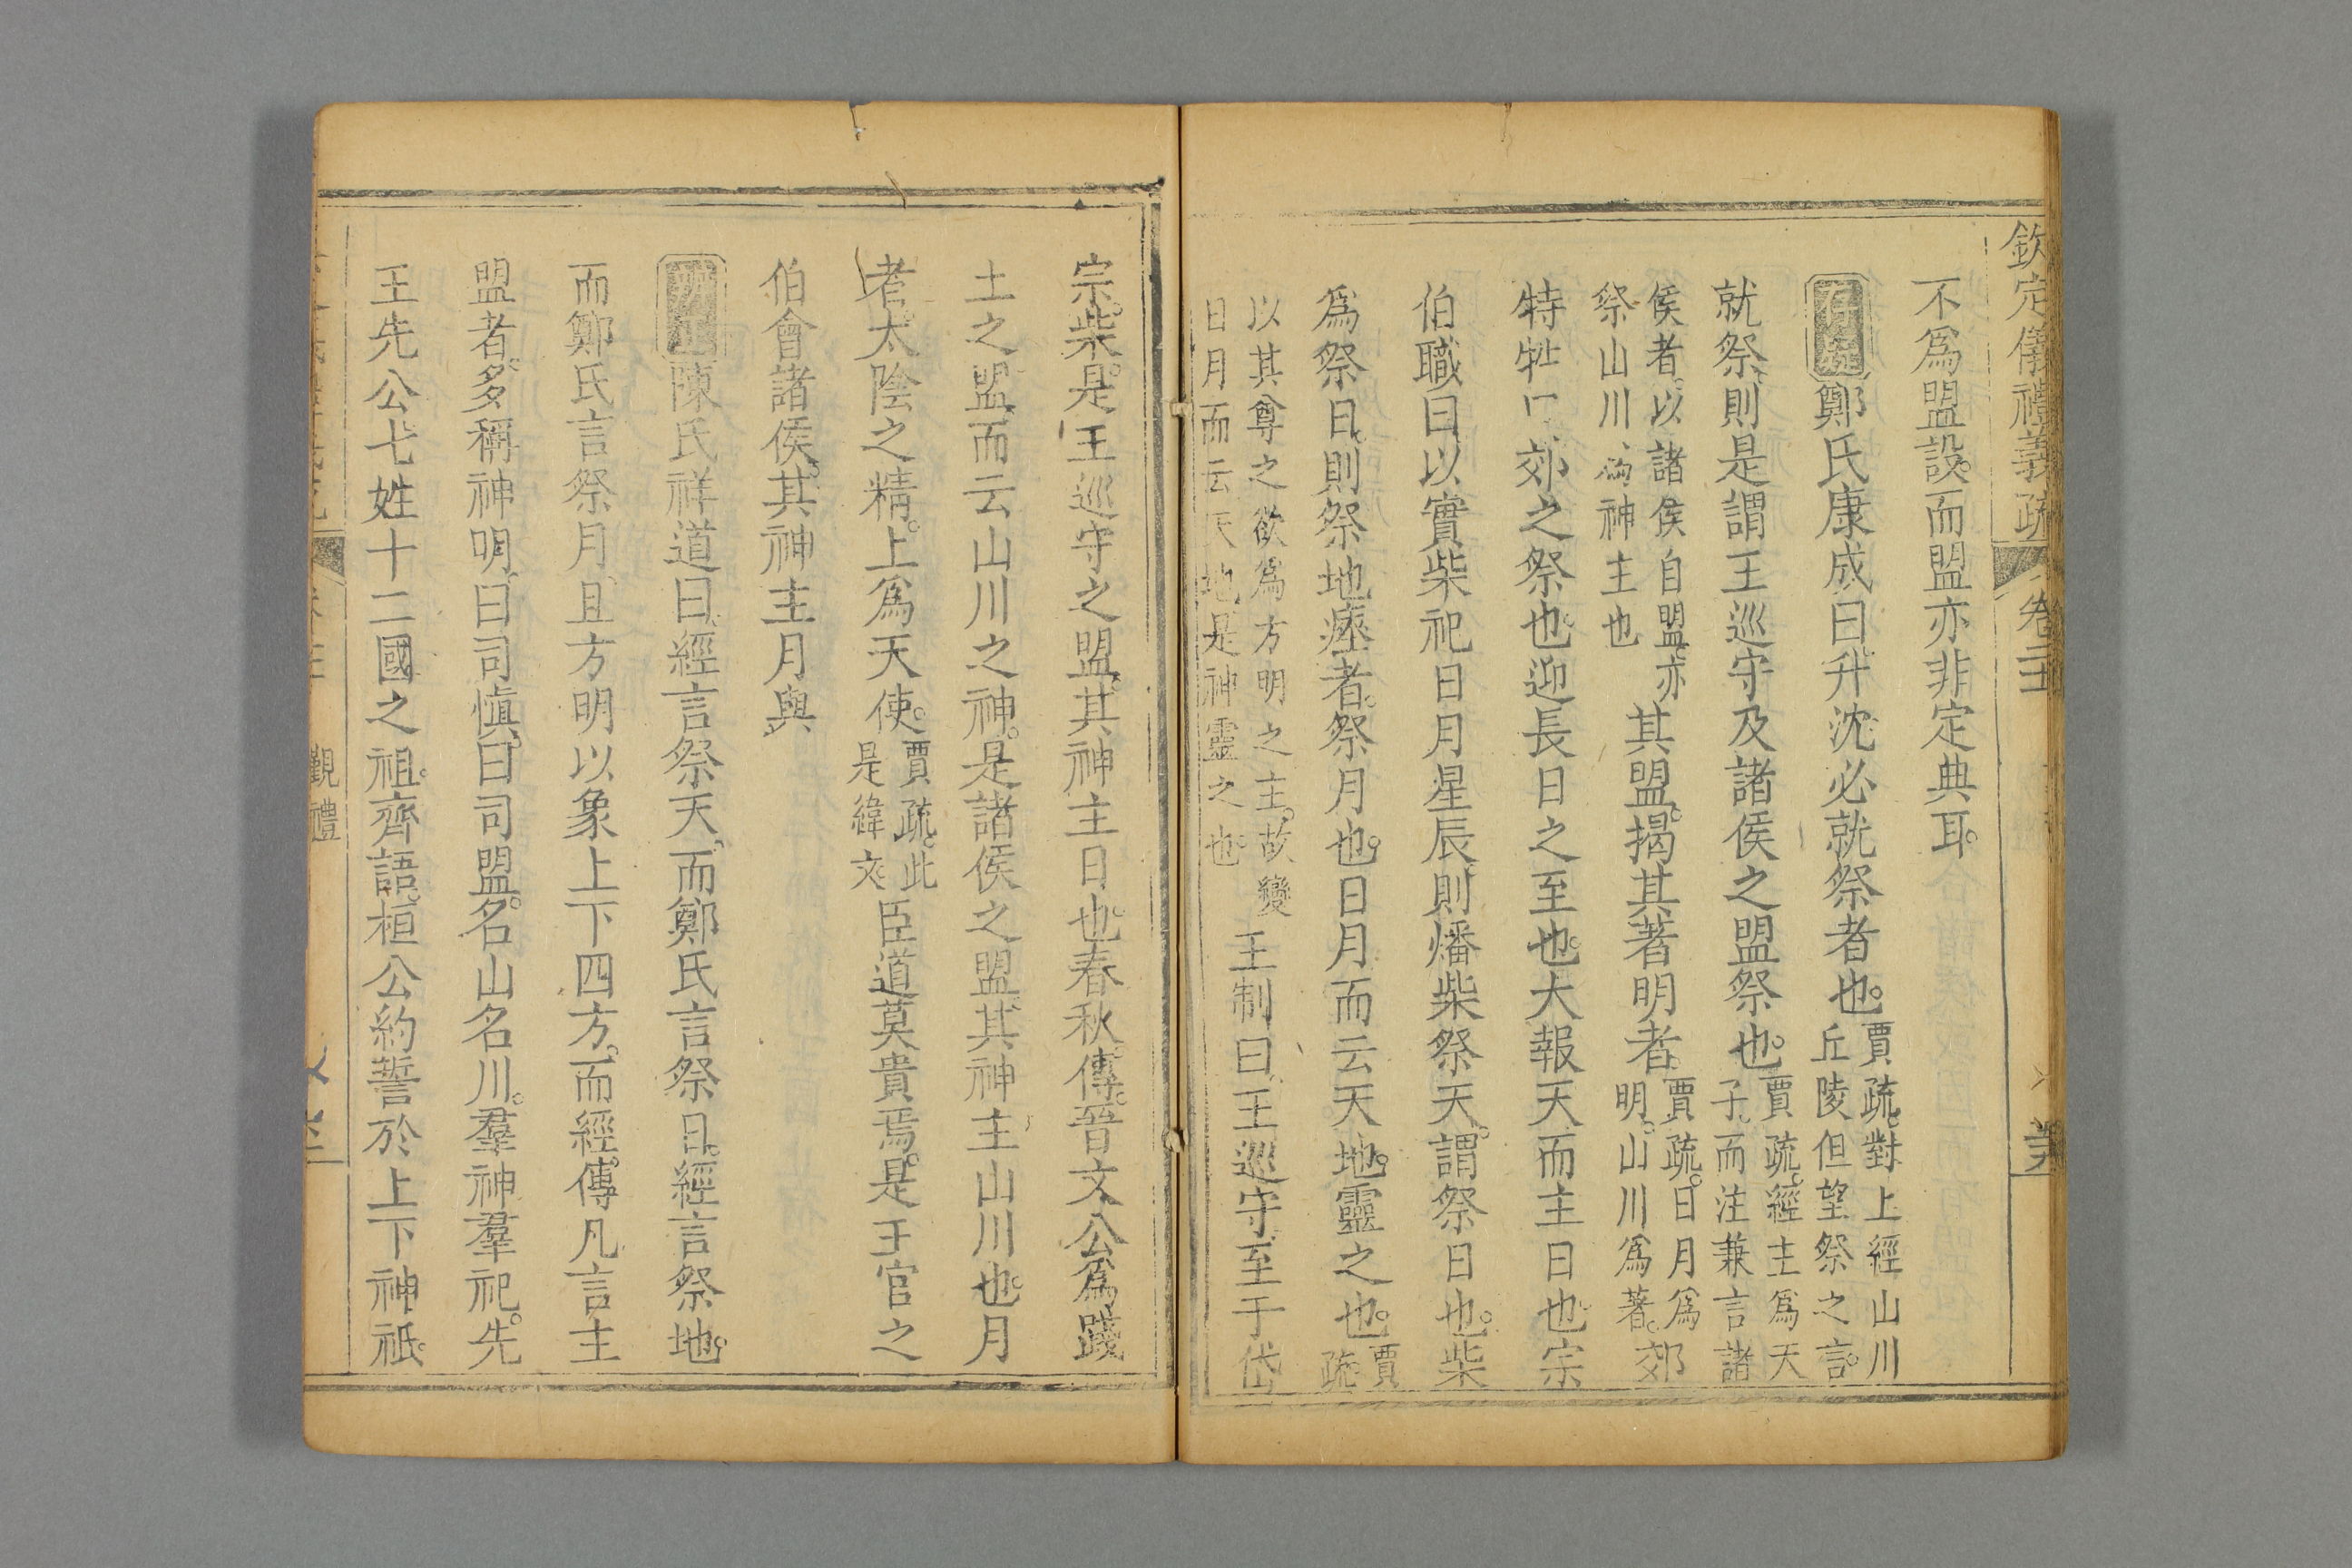 欽定儀禮義疏 卷二十
不爲盟設而盟亦非定典耳
存疑鄭氏康成曰升沈必就祭者也賈疏對上經山川丘陵但望祭之言
就祭則是謂王巡守及諸侯之盟祭也賈疏經主爲天子而注兼言諸
侯者以諸侯自盟亦祭山川爲神主也其盟揭其著明者賈疏日月爲明山川爲著郊
特牲郊之祭也迎長日之至也大報天而主日也宗
伯職曰以實柴祀日月星辰則燔柴祭天謂祭日也柴
爲祭日則祭地瘞者祭月也日月而云天地靈之也賈疏
以其尊之欲爲方明之主故變日月而云天地是神靈之也王制曰王巡守至于岱
宗柴是王巡守之盟其神主日也春秋傳晉文公爲踐
土之盟而云山川之神是諸侯之盟其神主山川也月
者太陰之精上爲天使賈疏此是緯文臣道莫貴焉是王官之
伯會諸侯其神主月與
陳氏祥道曰經言祭天而鄭氏言祭日經言祭地
而鄭氏言祭月且方明以象上下四方而經傳凡言主
盟者多稱神明曰司慎曰司盟名山名川羣神羣祀先
王先公七姓十二國之祖齊語桓公約誓於上下神祇
覲禮